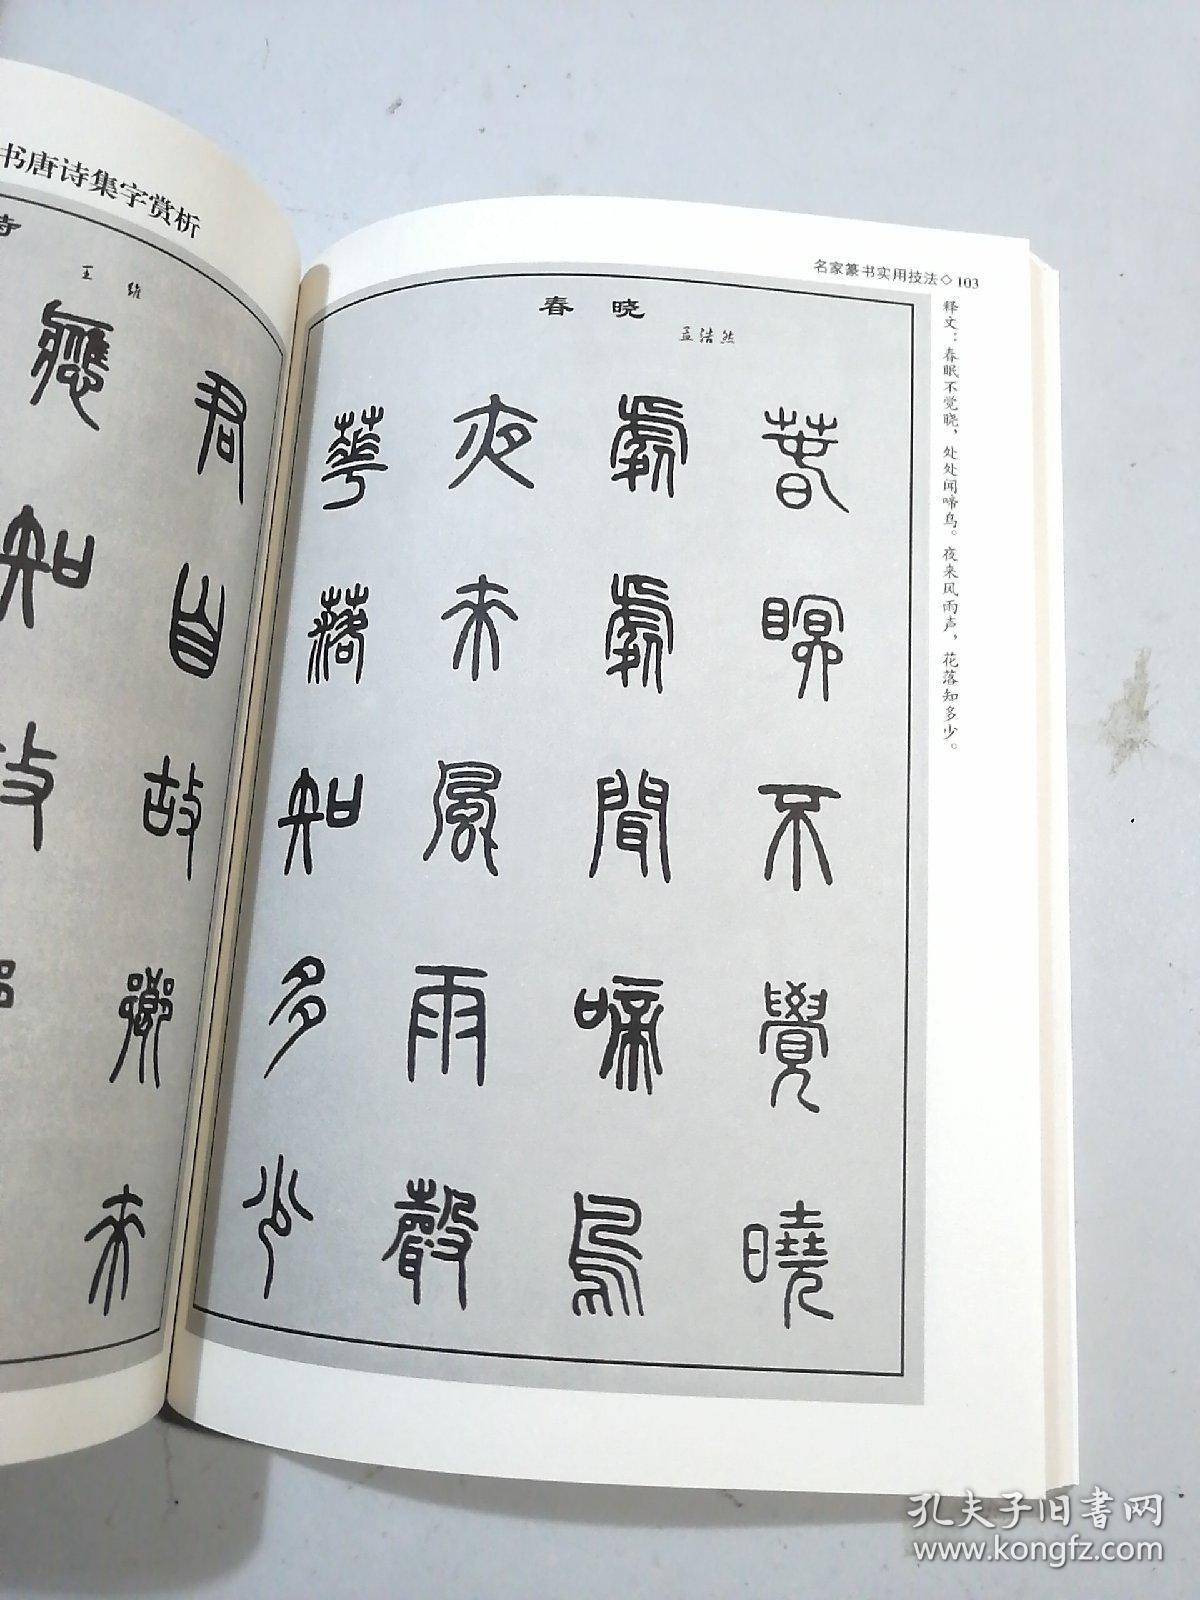 书唐诗集字赏析
诗
王维
君自故乡来
应知故乡
名家篆书实用技法◇103
春晓
孟浩然
春眠不覺曉
處處聞啼鳥
夜来風雨聲
華落知多少
释文：春眠不觉晓，处处闻啼鸟。夜来风雨声，花落知多少。
孔夫子旧书网
www.kongfz.com